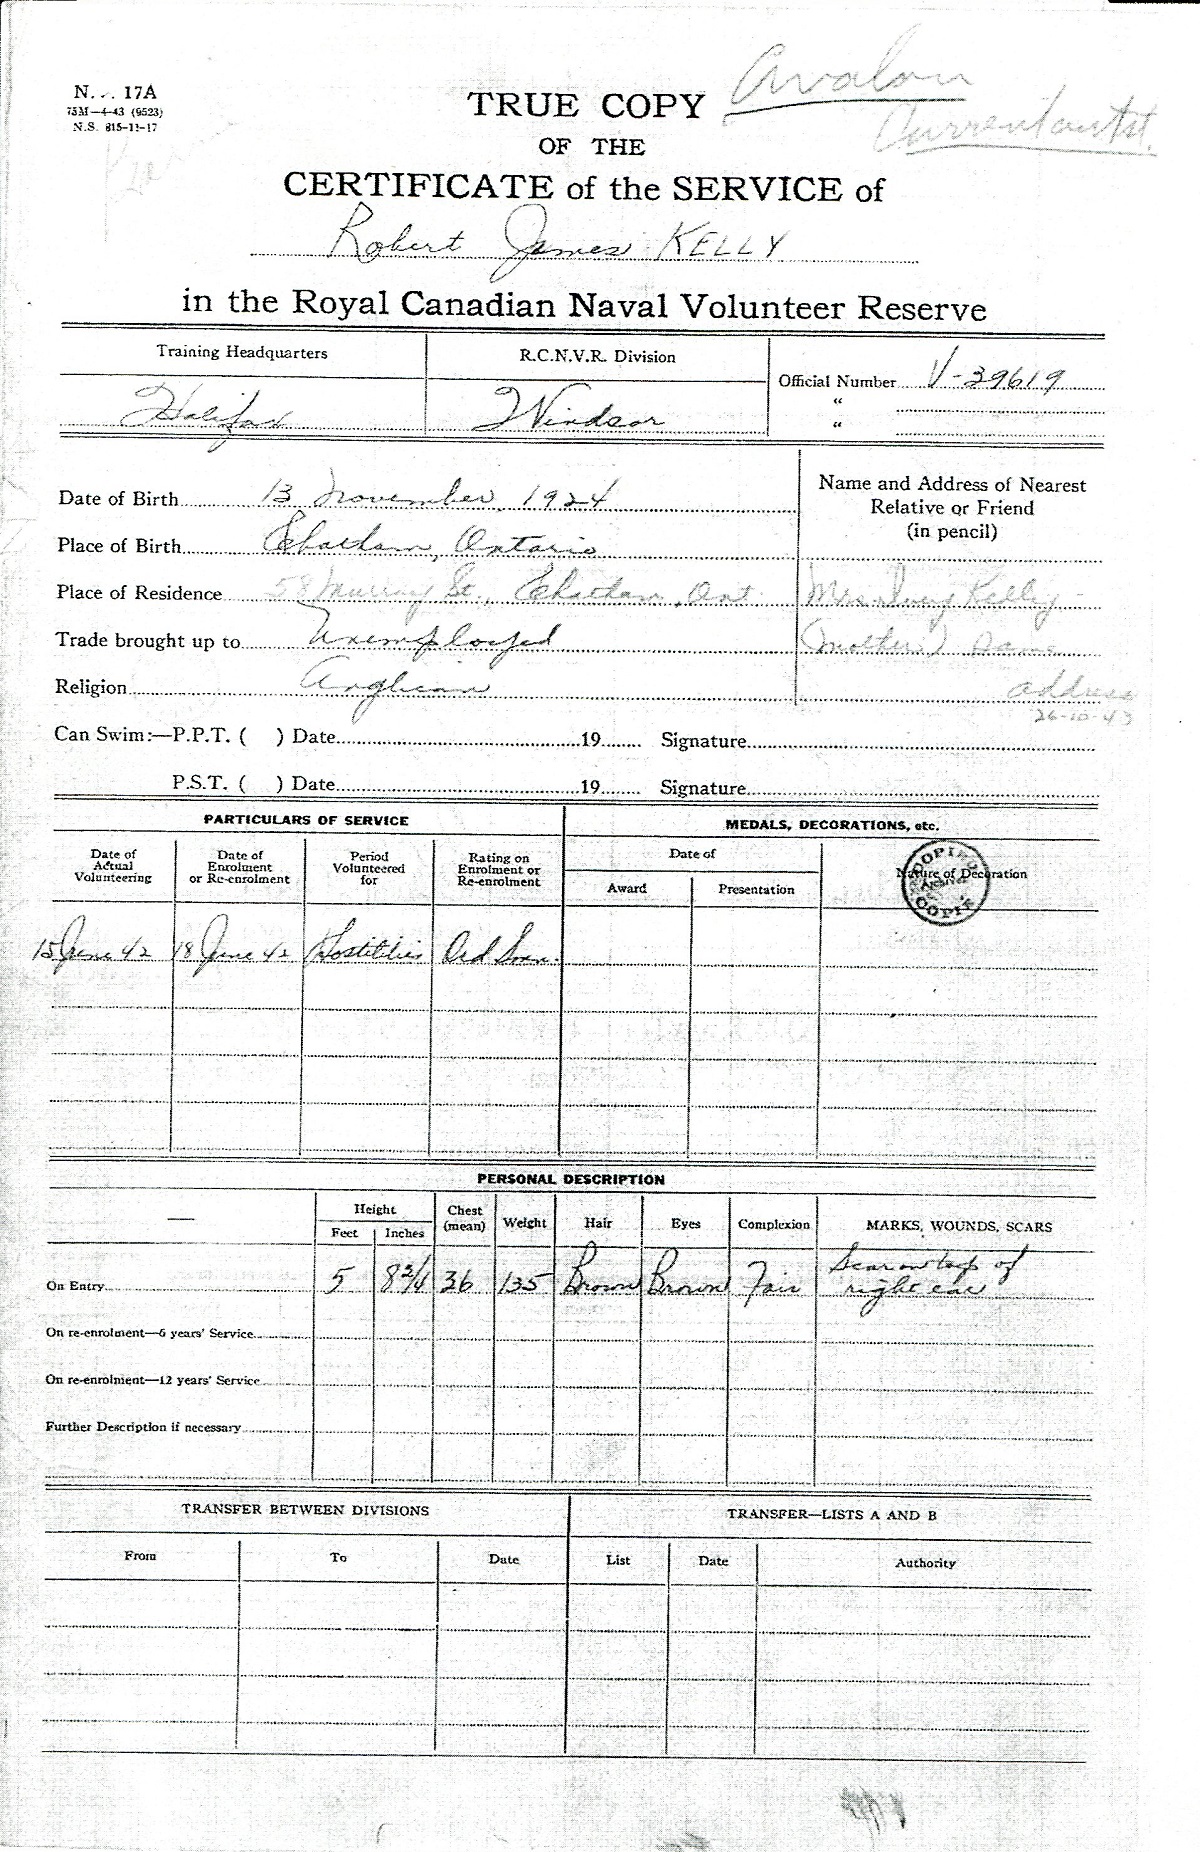 N. . 17A
75M—4-43 (9523)
N.S. 815-11-17
Avalon
TRUE COPY
OF THE
CERTIFICATE of the SERVICE of
Robert James KELLY
in the Royal Canadian Naval Volunteer Reserve
Training Headquarters R.C.N.V.R. Division
Official Number V-39619
Halifax Windsor "
"
Name and Address of Nearest
Relative or Friend
(in pencil)
Date of Birth 13 November, 1924
Place of Birth Chatham, Ontario
Place of Residence 58 Murray St., Chatham, Ont. Mrs. Kelly
Trade brought up to Unemployed (mother) same
Religion Anglican address
26-10-43
Can Swim:—P.P.T. ( ) Date 19 Signature
P.S.T. ( ) Date 19 Signature
PARTICULARS OF SERVICE MEDALS, DECORATIONS, etc.
Date of Actual Volunteering Date of Enrolment or Re-enrolment Period Volunteered for Rating on Enrolment or Re-enrolment Date of
Award Presentation Nature of Decoration
COPIED
COPIE
15 June 42 18 June 42 Hostilities Ord Smn.
PERSONAL DESCRIPTION
— Height Chest (mean) Weight Hair Eyes Complexion MARKS, WOUNDS, SCARS
Feet Inches
On Entry 5 8 3/4 36 135 Brown Brown Fair Scar on top of
right ear
On re-enrolment—6 years' Service
On re-enrolment—12 years' Service
Further Description if necessary
TRANSFER BETWEEN DIVISIONS TRANSFER—LISTS A AND B
From To Date List Date Authority